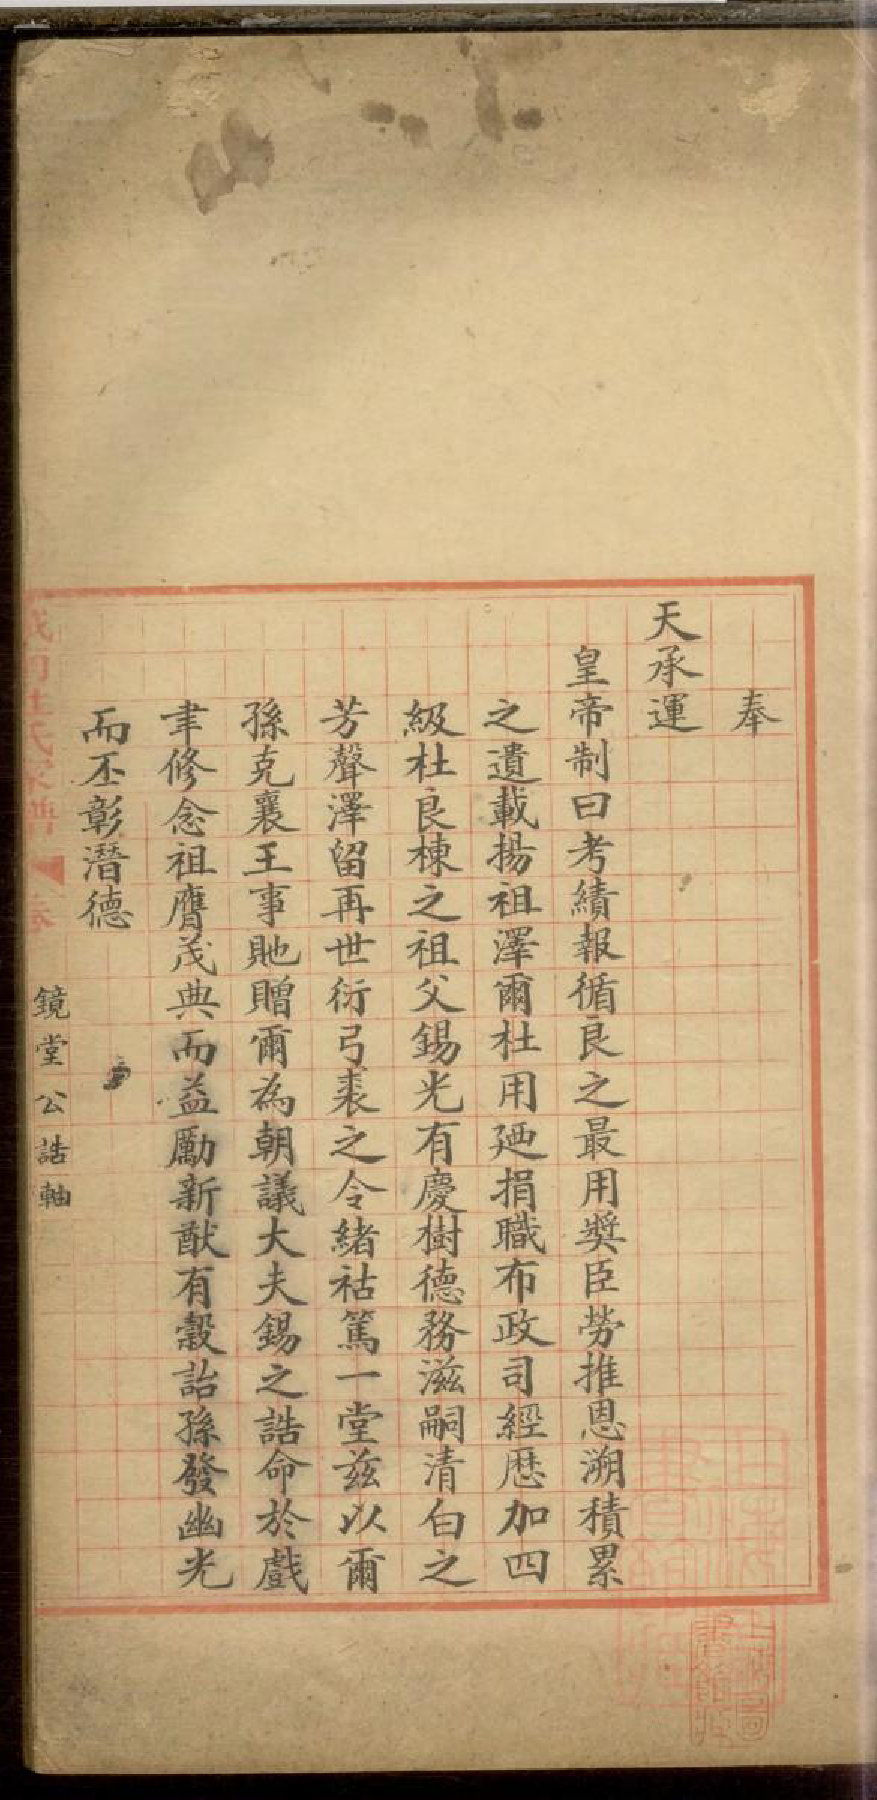 奉
天承運
皇帝制曰考績報循良之最用奬臣勞推恩溯積累
之遺載揚祖澤爾杜用廼捐職布政司經歴加四
級杜良棟之祖父錫光有慶樹德務滋嗣清白之
芳聲澤留再世衍弓裘之令緒祜篤一堂兹以爾
孫克襄王事貤贈爾為朝議大夫錫之誥命於戲
聿修念祖膺茂典而益勵新猷有穀詒孫發幽光
而丕彰潛德
鏡堂公誥軸
杜氏家譜